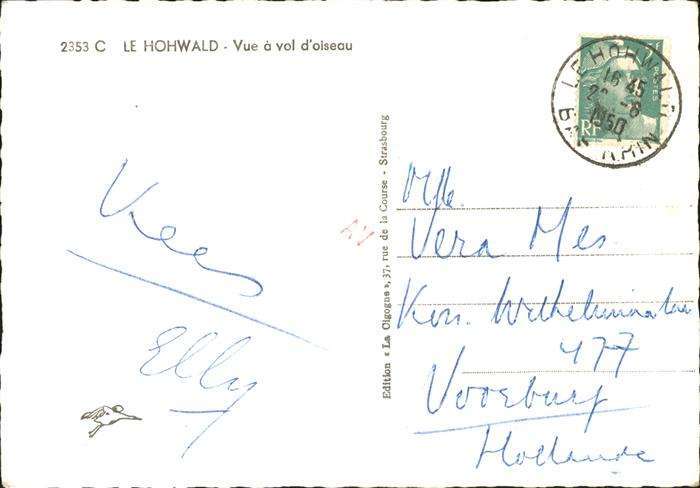 2353 C LE HOHWALD - Vue à vol d'oiseau
LE HOHWALD
16 45
1950
BAS RHIN
POSTES
RF
Kees
Elly
Edition « La Cigogne », 37, rue de la Course - Strasbourg
Mlle.
Vera Mes.
Kon. Wilhelminalaan
477
Voorburg
Hollande